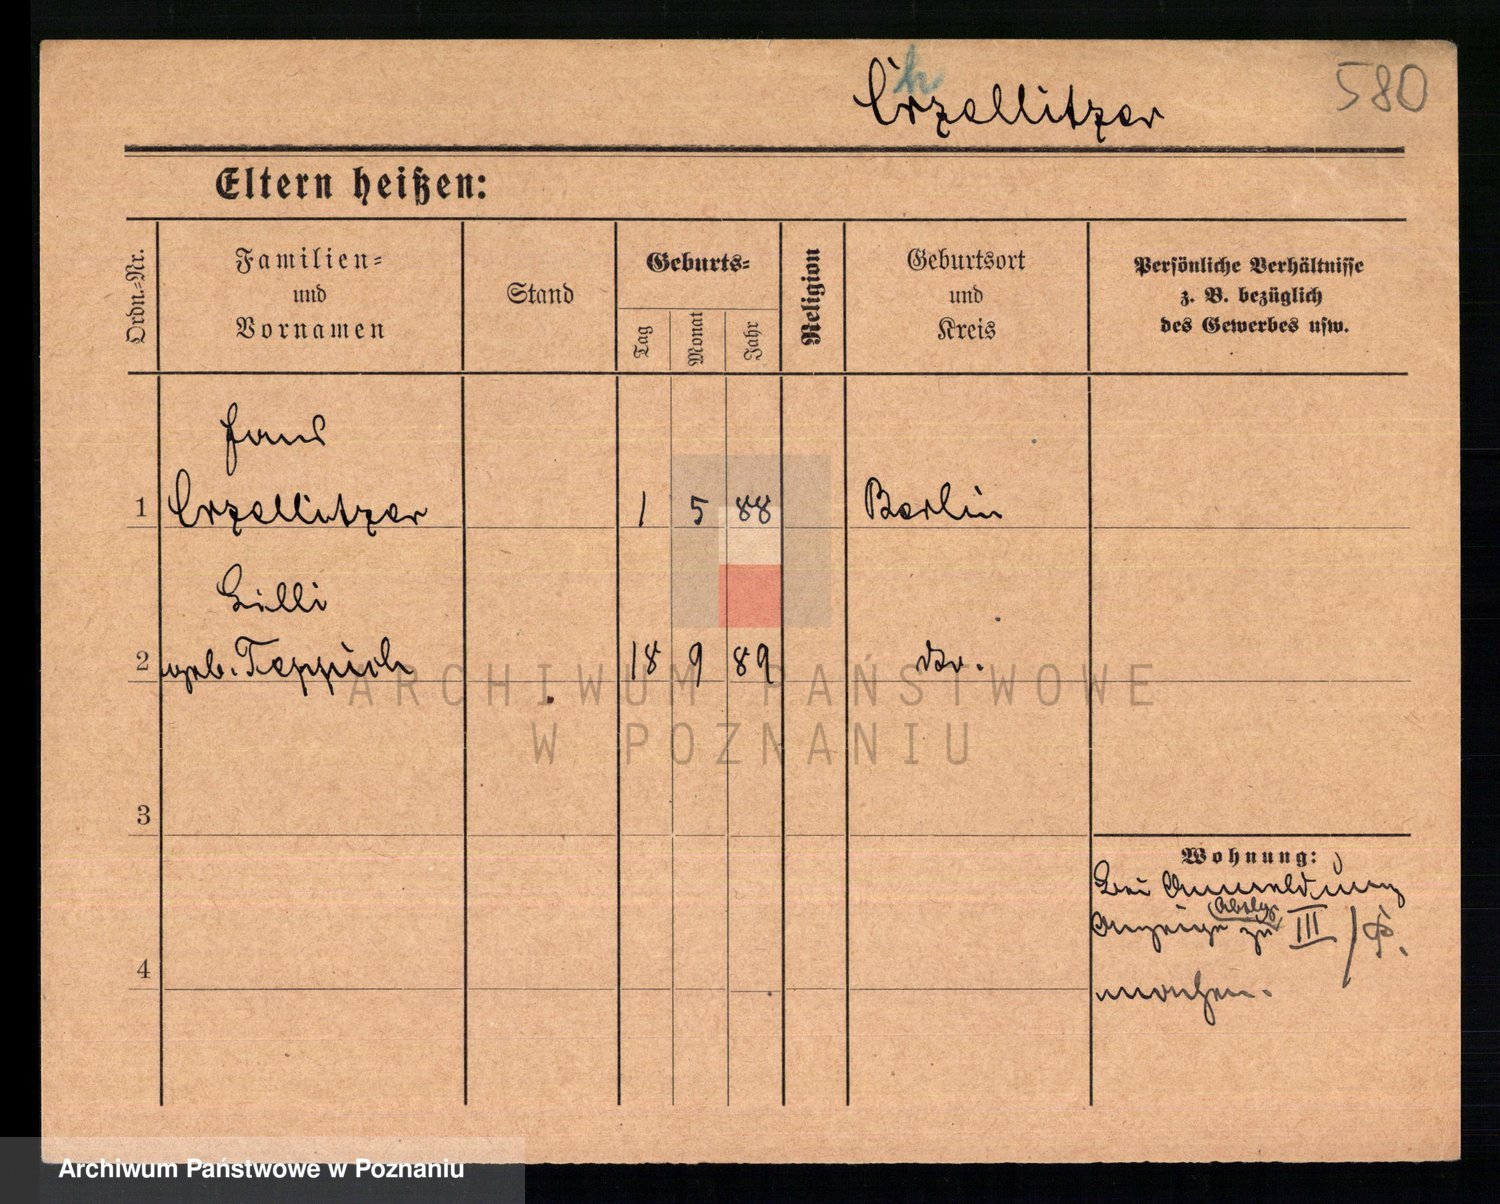 h
Crzellitzer
580
Eltern heißen:
Ordn.-Nr.
Familien-
und
Vornamen
Stand
Geburts-
Tag
Monat
Jahr
Religion
Geburtsort
und
Kreis
Persönliche Verhältnisse
z. B. bezüglich
des Gewerbes usw.
Hans
1 Crzellitzer 1 5 88 Berlin
Lilli
2 geb. Teppich 18 9 89 do.
3
Wohnung:
Bei Anmeldung
Anzeige zu III
4
machen.
ARCHIWUM PAŃSTWOWE
W POZNANIU
Archiwum Państwowe w Poznaniu